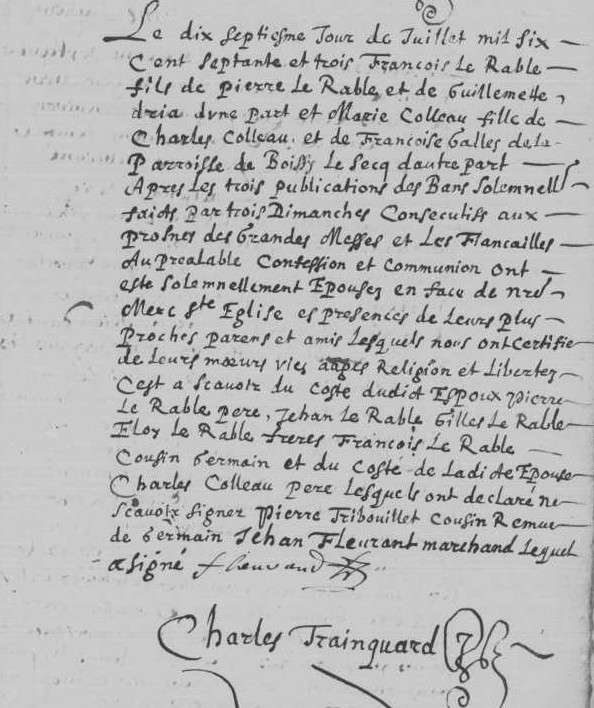 Le dix septiesme Jour de Juillet mil six
Cent septante et trois François Le Rable
fils de pierre Le Rable et de Guillemette
dria dvne part et Marie Colleau fille de
Charles Colleau et de Francoise Galles de La
Parroisse de Boissy Le Secq dautre part
Apres Les trois publications des Bans Solemnell
faicts par trois Dimanches Consecutifs aux
prosnes des Grandes Messes et Les Fiancailles
Au prealable Confession et Communion ont
este solemnellement Epousez en face de nre
Mere Ste Eglise es presences de Leurs plus
proches parens et amis Lesquels nous ont certifie
de Leurs mœurs vies aages Religion et Libertez
Cest a scavoir du Coste dudict Espoux pierre
Le Rable pere, Jehan Le Rable Gilles Le Rable
Eloy Le Rable freres François Le Rable
Cousin Germain et du Costé de Ladicte Epouse
Charles Colleau pere Lesquels ont declaré ne
scavoir signer Pierre Tribouillet Cousin Remue
de Germain Jehan Fleurant marchand Lequel
a signé
Charles Trainquard